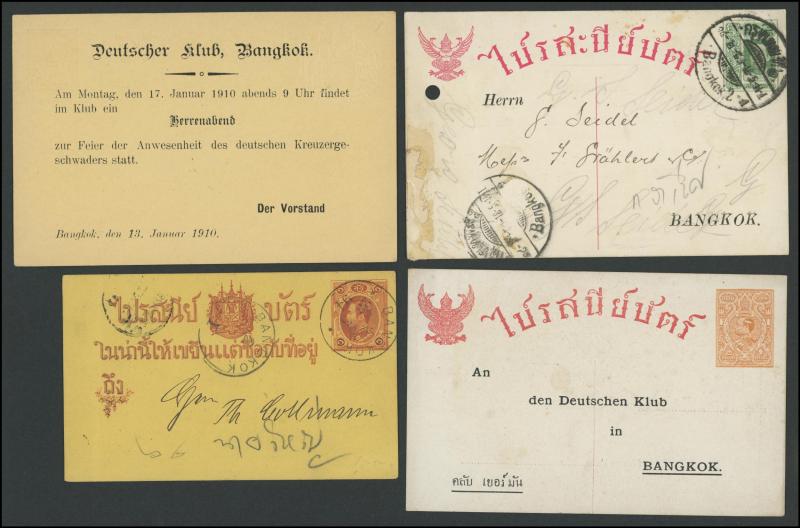 Deutscher Klub, Bangkok.
Am Montag, den 17. Januar 1910 abends 9 Uhr findet
im Klub ein
Herrenabend
zur Feier der Anwesenheit des deutschen Kreuzerge-
schwaders statt.
Der Vorstand
Bangkok, den 13. Januar 1910.
ไปรสะนียบัตร
Bangkok 2
Herrn
G. Seidel
BANGKOK.
Bangkok
ไปรสนีย์ บัตร์
ในน่านี้ให้เขียนแต่ชื่อกับที่อยู่
ถึง
BANGKOK
BANGKOK
Th. Collmann
ไปรสนียบัตร์
An
den Deutschen Klub
in
BANGKOK.
คลับ เยอร์มัน